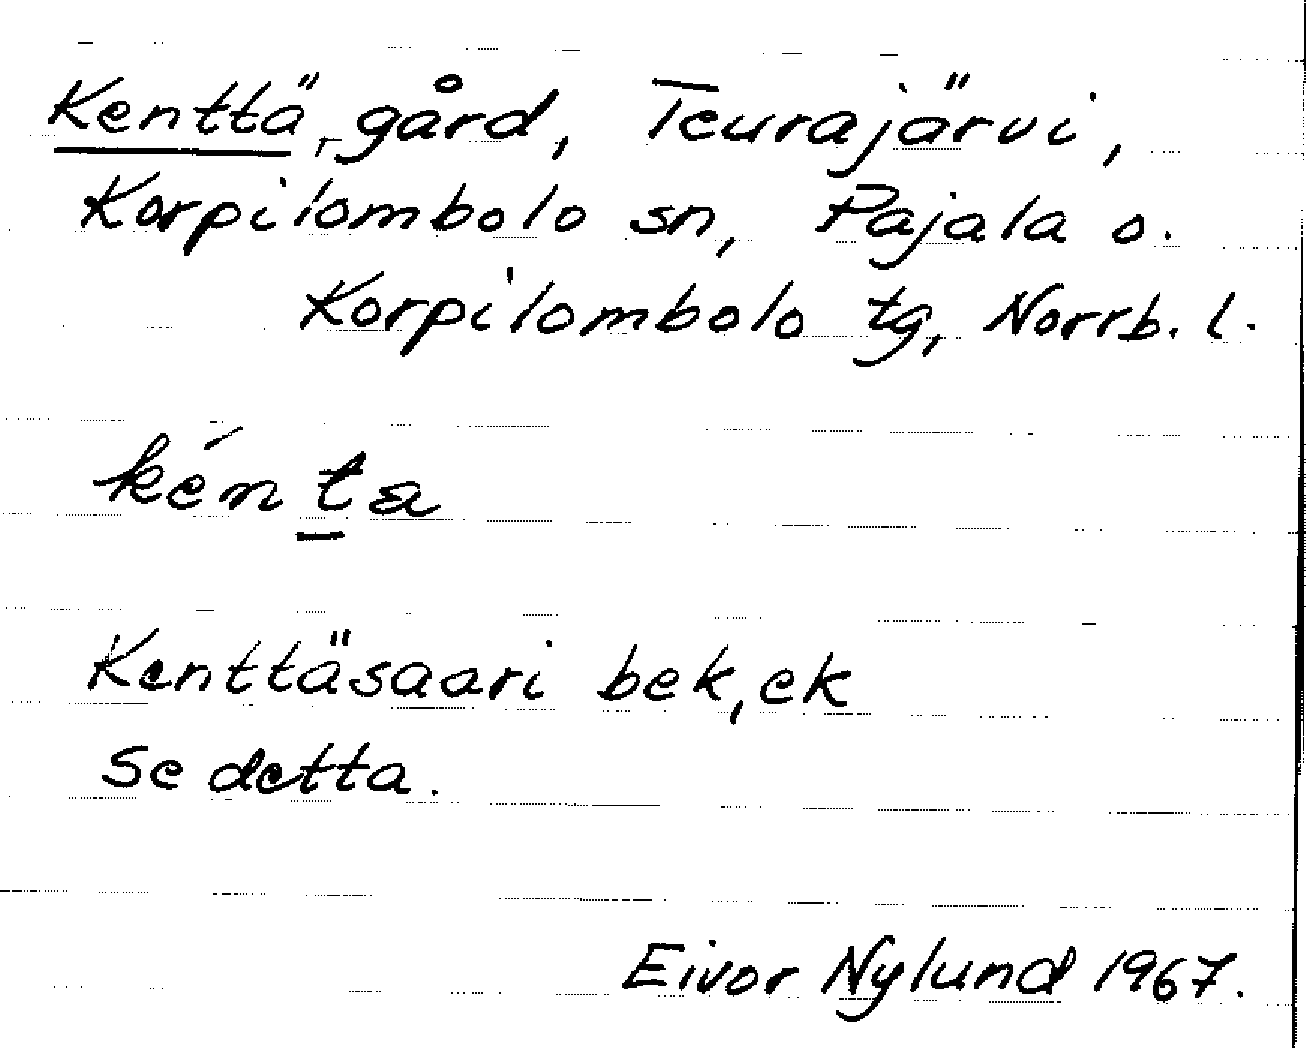 Kenttä, gård, Teurajärvi,
Korpilombolo sn, Pajala o.
Korpilombolo tg, Norrb. l.
kén ta
Kenttäsaari bek, ek
Se detta.
Eivor Nylund 1967.